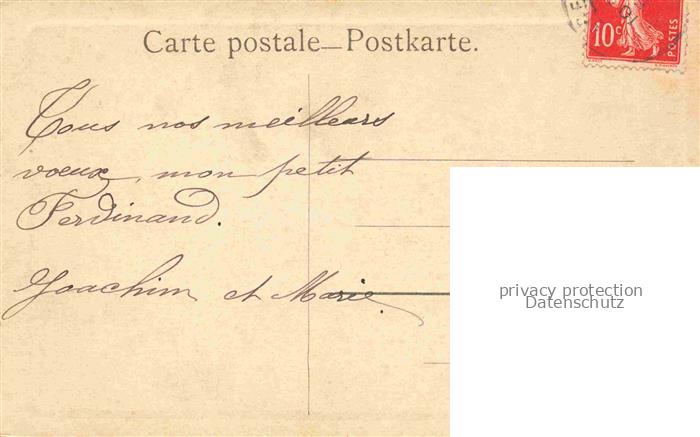 Carte postale—Postkarte.
10c
POSTES
Tous nos meilleurs
voeux, mon petit
Ferdinand.
Joachim et Marie.
privacy protection
Datenschutz